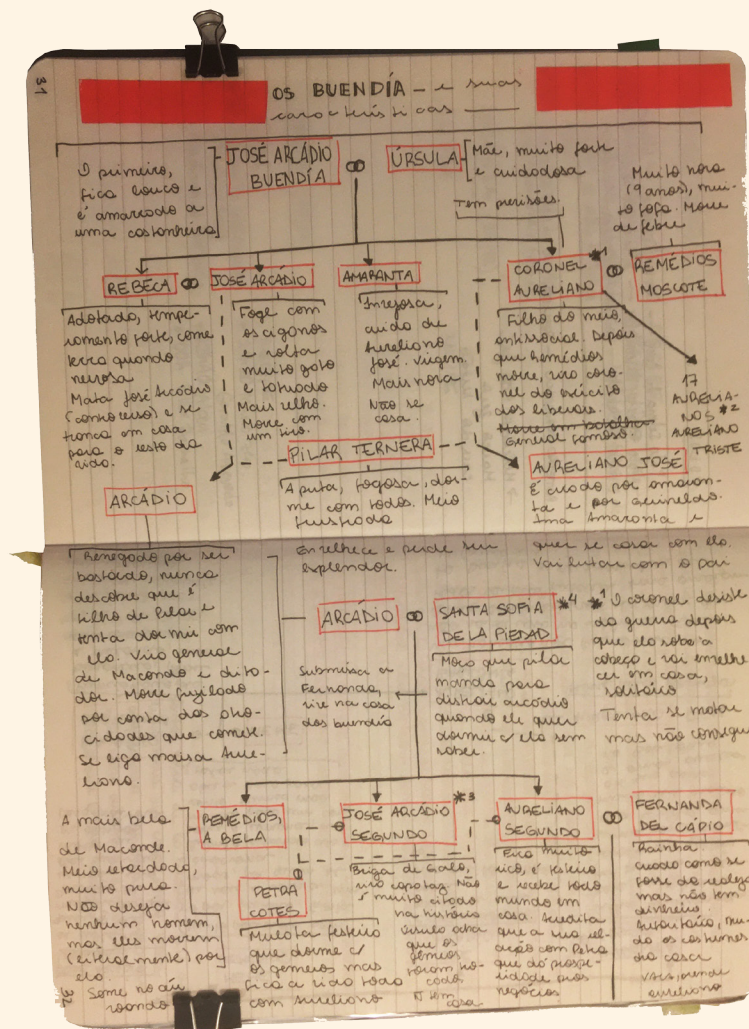 31
OS BUENDÍA - e suas
características
O primeiro,
fica louco e
é amarrado a
uma castanheira
JOSÉ ARCÁDIO
BUENDÍA
ÚRSULA
Mãe, muito forte
e cuidadosa
Tem previsões.
Muito nova
(9 anos), mui-
to fofa. Morre
de febre
REBECA
JOSÉ ARCÁDIO
AMARANTA
CORONEL *1
AURELIANO
REMÉDIOS
MOSCOTE
Adotada, tempe-
ramento forte, come
terra quando
nervosa
Mata José Arcádio
e se
tranca em casa
para o resto da
vida.
Foge com
os ciganos
e volta
muito gato
e tatuado
Mais velho.
Morre com
um tiro.
Invejosa,
cuida de
Aureliano
José. Virgem.
Mais nova
Não se
casa.
Filho do meio,
antissocial. Depois
que Remédios
morre, vira coro-
nel do exército
dos liberais.
Morre em batalha
General famoso.
17
AURELIA-
NOS *2
AURELIANO
TRISTE
PILAR TERNERA
A puta, fogosa, dor-
me com todos. Meio
frustrada
Envelhece e perde seu
esplendor.
AURELIANO JOSÉ
É criado por amaran-
ta e por Gerineldo.
Ama Amaranta e
quer se casar com ela.
Vai lutar com o pai
ARCÁDIO
Renegado por ser
bastardo, nunca
descobre que é
filho de Pilar e
tenta dormir com
ela. Vira general
de Macondo e dita-
dor. Morre fuzilado
por conta das atro-
cidades que comete.
Se liga mais a Aure-
liano.
ARCÁDIO
SANTA SOFÍA *4
DE LA PIEDAD
Submissa a
Fernanda,
vive na casa
dos buendia
Moça que pilar
manda para
distrair arcádio
quando ele quer
dormir c/ ela sem
saber.
*1 O coronel desiste
da guerra depois
que ela sobe a
cabeça e vai envelhe
cer em casa,
solitário
Tenta se matar
mas não consegue
A mais bela
de Maconde.
Meio retardada,
muito pura.
Não deseja
nenhum homem,
mas eles morrem
(literalmente) por
ela.
Some no ar
voando
REMÉDIOS,
A BELA
JOSÉ ARCÁDIO *3
SEGUNDO
AURELIANO
SEGUNDO
FERNANDA
DEL CÁPIO
PETRA
COTES
Mulata festeira
que dorme c/
os gemeos mas
fica a vida toda
com aureliano
Briga de Galo,
vira capataz. Não
é muito citado
na história
Úrsula acha
que os
gêmeos
foram tro-
cados
Ñ tem
casa
Fica muito
rico, é festeiro
e recebe todo
mundo em
casa. Acredita
que a sua rel-
ação com Petra
que dá prospe-
ridade pros
negócios
Rainha.
criada como se
fosse da realeza
mas não tem
dinheiro.
Autoritária, mu-
da os costumes
da casa
aureliano
32